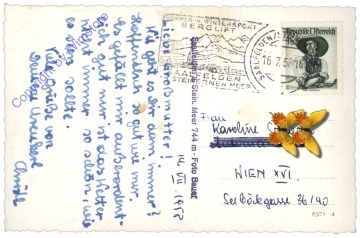 Liebe Großmutter!
Wie geht es Dir denn immer?
Hoffentlich so gut wie mir.
Es gefällt mir außerordent-
lich gut, nur ist das Wetter
nicht immer so schön, wie
es sein sollte.
Viele Grüße von
Deiner
Christl
14. VII. 1958
SOMMER- u. WINTERSPORT
BERGLIFT
SAALFELDEN
AM STEINERNEN MEER
SAALFELDEN
16.7.58
Republik Österreich
Saalfelden a. Stein. Meer 744 m - Foto Bauer
Frau
Karoline
WIEN XVI.
36/40.
6371 4